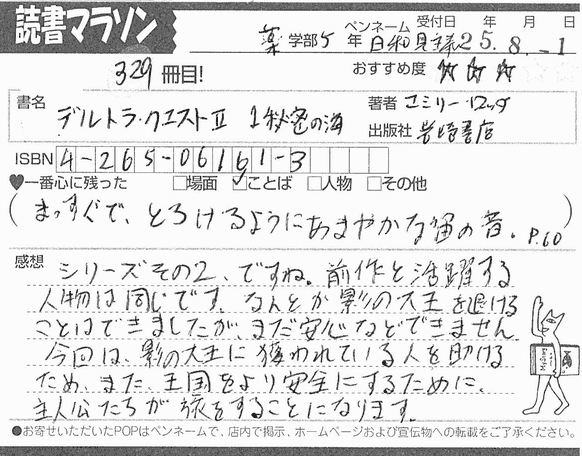 読書マラソン
ペンネーム 受付日 年 月 日
薬 学部 5 年 日和見 25.8.-1
329 冊目!
おすすめ度 ☆☆☆
書名 デルトラ・クエストⅡ 1 秘密の海
著者 エミリー・ロッダ
出版社 岩崎書店
ISBN 4-265-06161-3
♥一番心に残った □場面 ☑ことば □人物 □その他
(まっすぐで、とろけるようにあまやかな笛の音。P.60)
感想
シリーズその2、ですね。前作と活躍する
人物は同じです。なんとか影の大王を退ける
ことはできましたが、まだ安心などできません。
今回は、影の大王に獲われている人を助ける
ため、また、王国をより安全にするために、
主人公たちが旅をすることになります。
●お寄せいただいたPOPはペンネームで、店内で掲示、ホームページおよび宣伝物への転載をご了承ください。